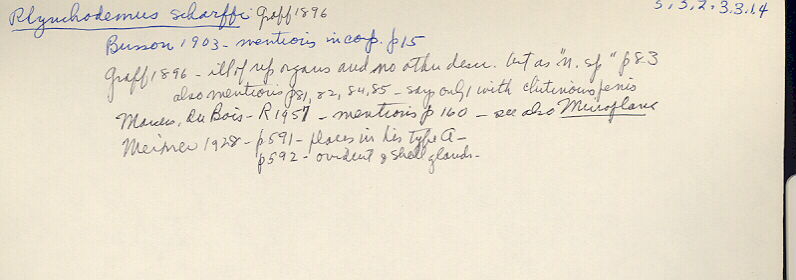 Rhynchodemus scharffi Graff 1896
5, 3, 2, 3.3.1.4
Busson 1903 - mentions in comp. p 15
Graff 1896 - ill of rep organs and no other descr. but as "n. sp" p 83
also mentions p 81, 82, 84, 85 - says only 1 with chitinous penis
Marcus, du Bois-R 1957 - mentions p 160 - see also Microplana
Meixner 1928 - p 591 - places in his type A -
p 592 - oviduct & shell glands -